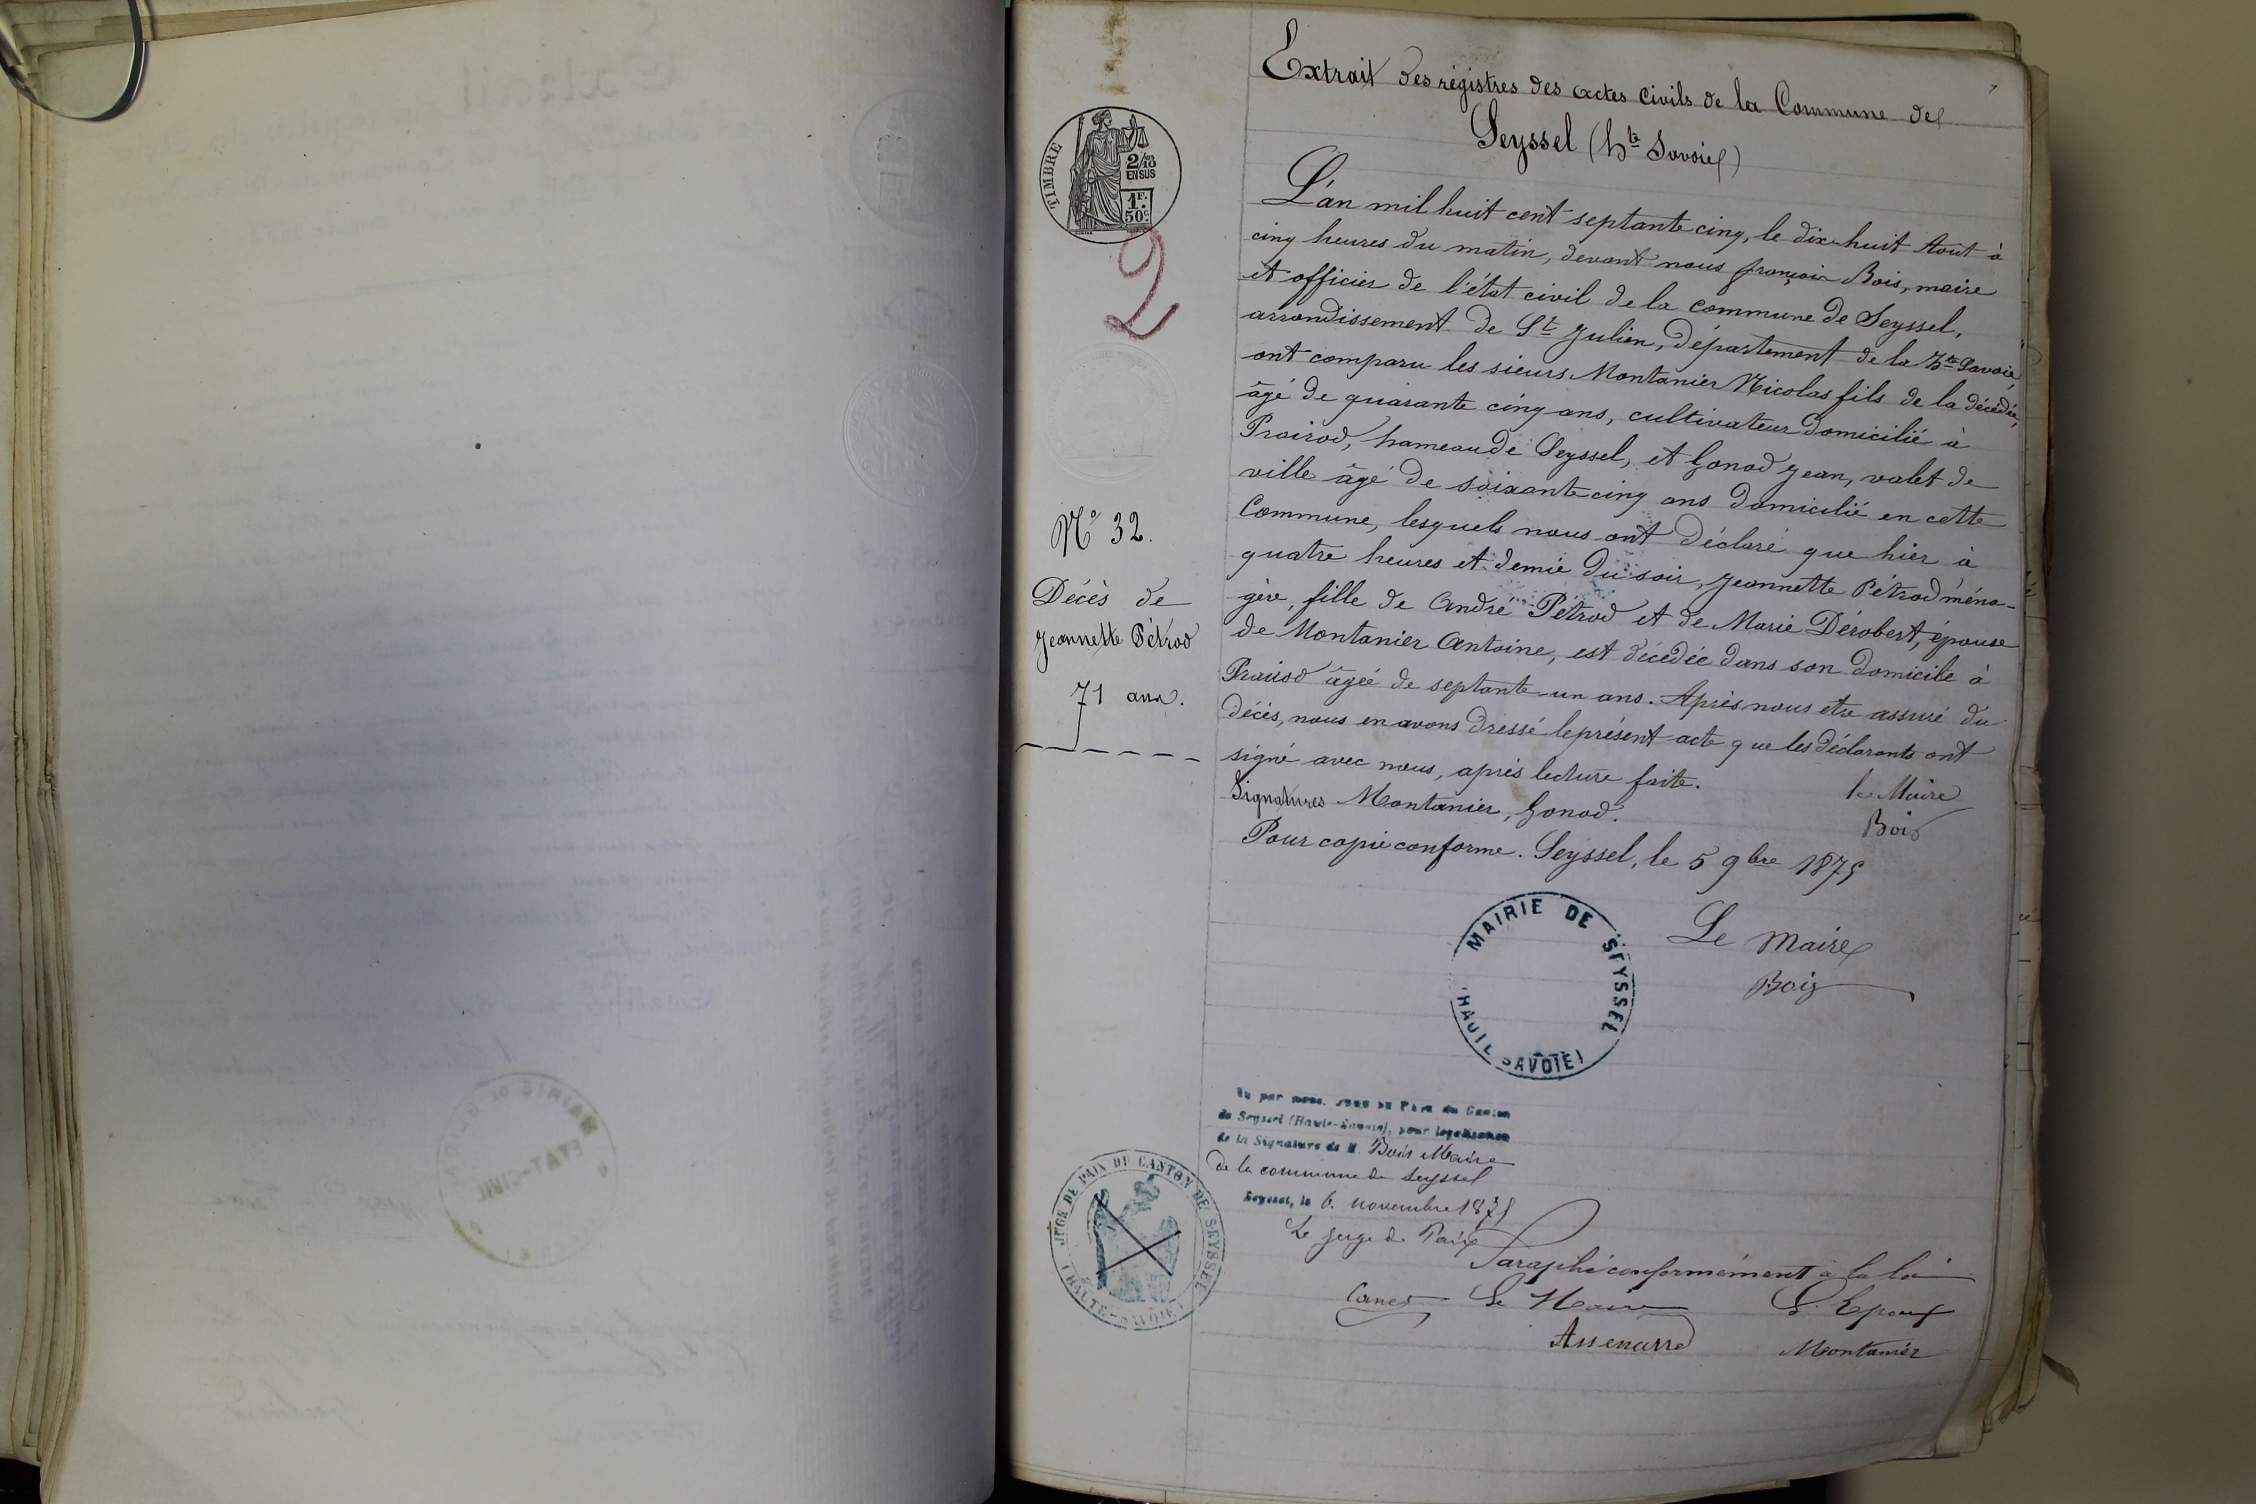 Extrait des régistres des actes civils de la Commune de
Seyssel (hte Savoie)
TIMBRE
2/10 EN SUS
1F. 50c.
2
L'an mil huit cent septante cinq, le dix-huit Aout à
cinq heures du matin, devant nous françois Bois, maire
et officier de l'état civil de la commune de Seyssel,
arrondissement de St Julien, département de la hte Savoie,
ont comparu les sieurs Montanier Nicolas fils de la décédée,
âgé de quarante cinq ans, cultivateur domicilié à
Prairod, hameau de Seyssel, et Gonod Jean, valet de
ville âgé de soixante cinq ans domicilié en cette
Commune, lesquels nous ont déclaré que hier à
quatre heures et demie du soir, Jeannette Pétrod ména-
gère, fille de André Pétrod et de Marie Dérobert, épouse
de Montanier Antoine, est décédée dans son domicile à
Prairod âgée de septante-un ans. Après nous être assuré du
décès, nous en avons dressé le présent acte que les déclarants ont
signé avec nous, après lecture faite.
Signatures Montanier, Gonod.
le Maire
Bois
Pour copie conforme. Seyssel, le 5 9bre 1875
No 32.
Décès de
Jeannette Pétrod
71 ans.
Le Maire
Bois
MAIRIE DE SEYSSEL
(HAUTE SAVOIE)
Vu par nous, Juge de Paix du Canton
de Seyssel (Haute-Savoie), pour légalisation
de la Signature de M. Bois Maire
de la commune de Seyssel
Seyssel, le 6. novembre 1875
Le juge de Paix
JUGE DE PAIX DU CANTON DE SEYSSEL
(HAUTE-SAVOIE)
Paraphé conformément à la loi
Le Maire
L'Epoux
Montanier